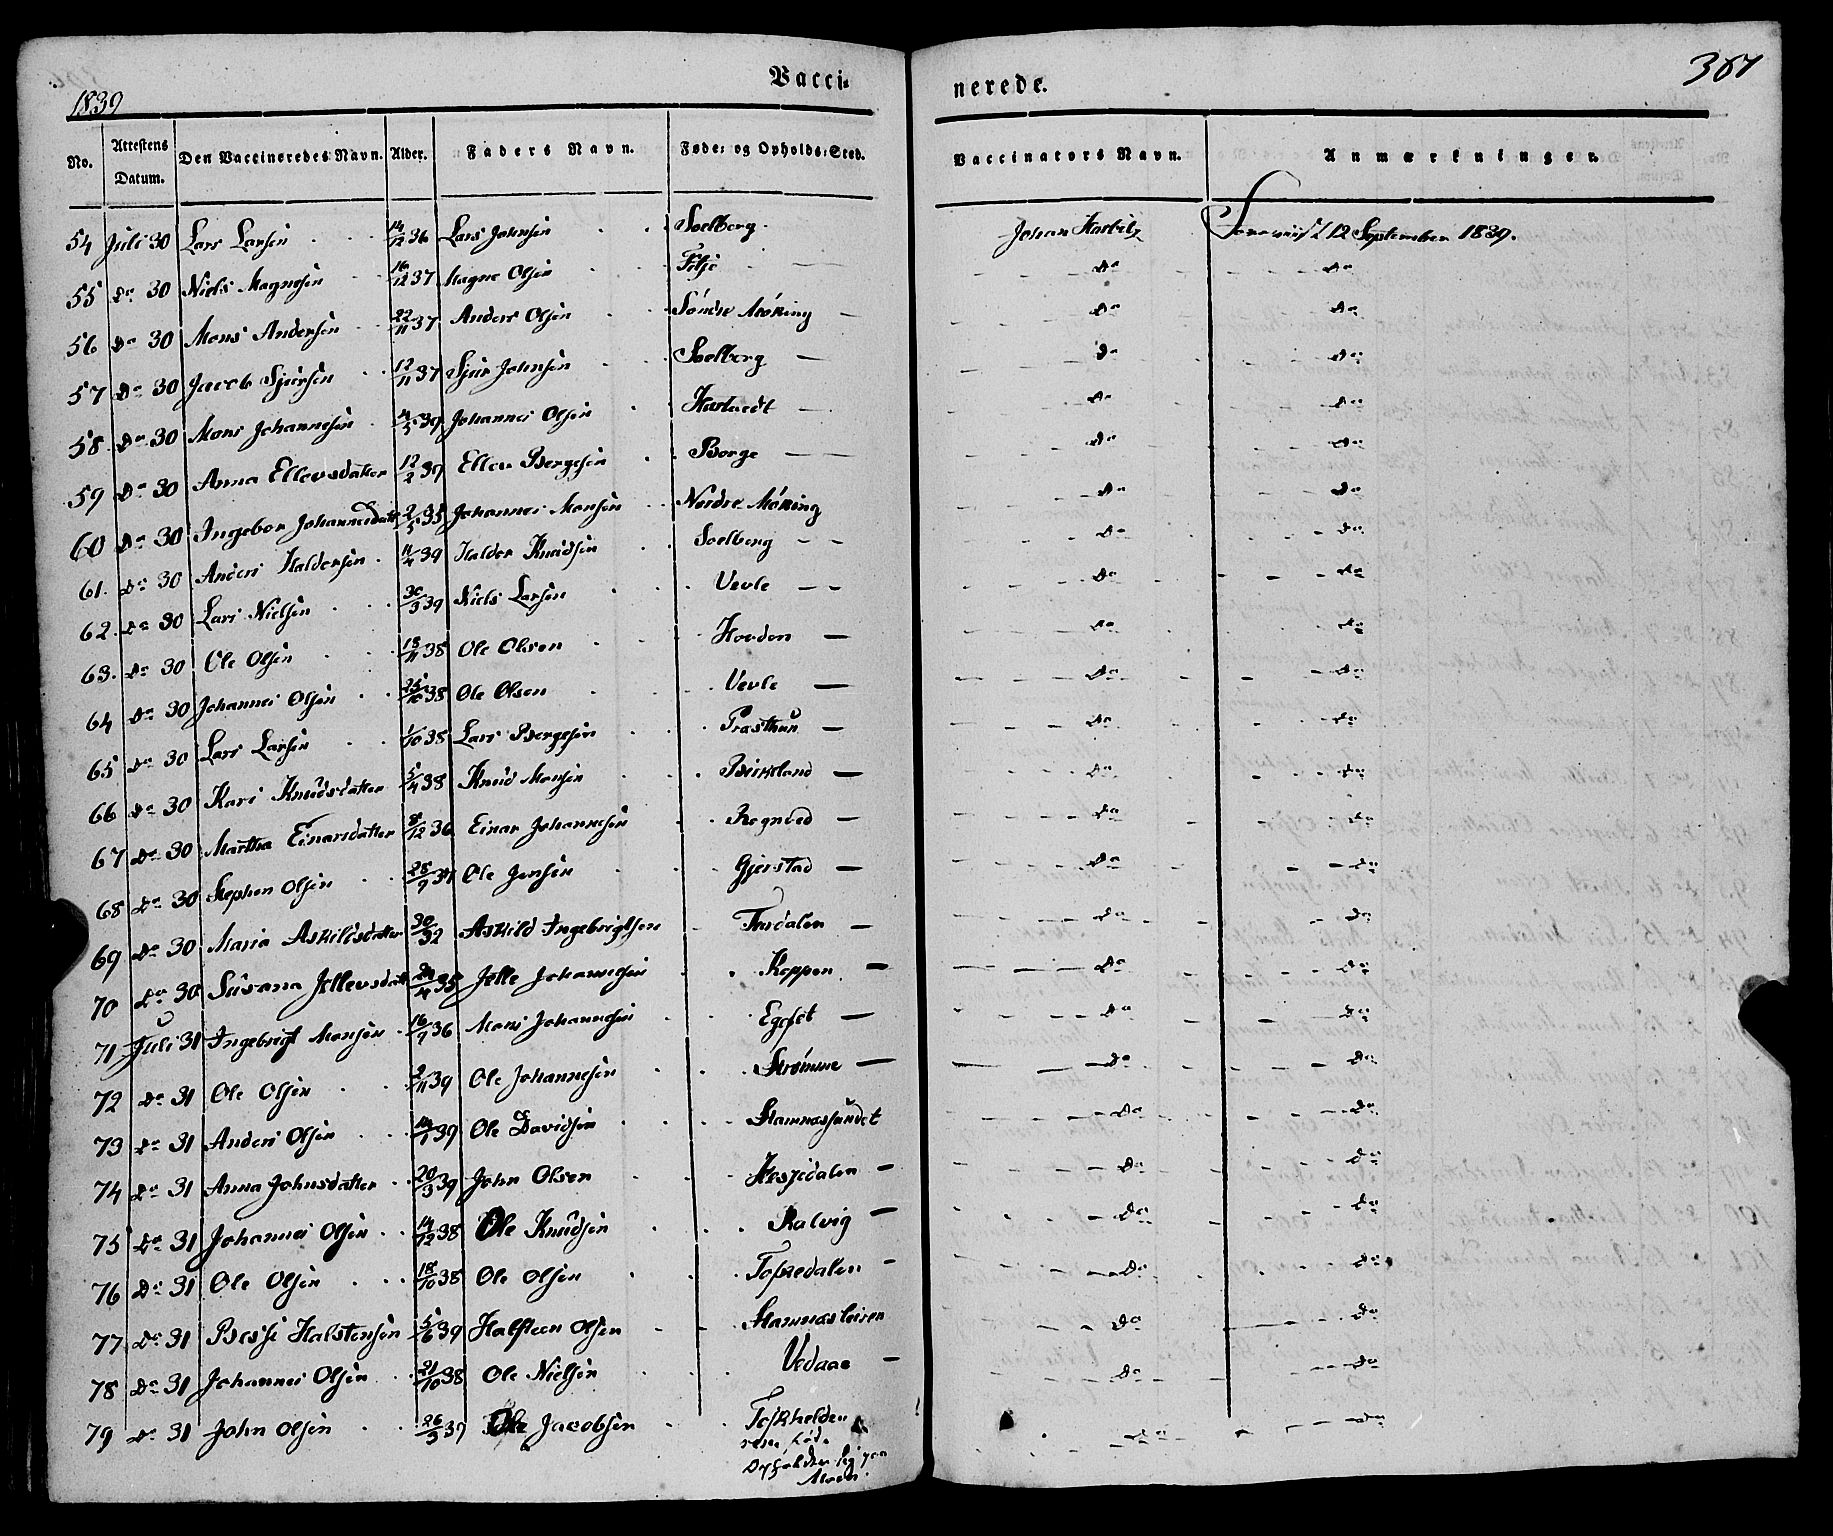 Vacci- nerede.
387
1839
No. Attestens Datum. Den Vaccineredes Navn. Alder. Faders Navn. Føde- og Opholds-Sted. Vaccinators Navn. Anmærkninger.
54 Juli 30 Lars Larsen 14/12 36 Lars Johnsen Soelberg Johan 12 September 1839.
55 Do 30 Niels Magnesen 16/12 37 Magne Olsen Filje Do Do
56 Do 30 Mons Andersen 22/11 37 Anders Olsen Søndre Møking Do Do
57 Do 30 Jacob Sjursen 12/11 37 Sjur Johnsen Soelberg Do Do
58 Do 30 Mons Johannesen 4/5 39 Johannes Olsen Do Do
59 Do 30 Anna Ellevsdatter 12/2 39 Ellev Bergesen Borge Do Do
60 Do 30 Ingebor Johannesdatt 2/5 35 Johannes Monsen Nordre Møking Do Do
61. Do 30 Anders Haldorsen 11/4 39 Haldor Knudsen Soelberg Do Do
62. Do 30 Lars Nielsen 30/3 39 Niels Larsen Vevle Do Do
63. Do 30 Ole Olsen 18/11 38 Ole Olsen Hovden Do Do
64 Do 30 Johannes Olsen 25/10 38 Ole Olsen Vevle Do Do
65 Do 30 Lars Larsen 1/10 38 Lars Bergesen Præsthun Do Do
66 Do 30 Kari Knudsdatter 5/4 38 Knud Monsen Birkeland Do Do
67 Do 30 Martha Einarsdatter 8/12 36 Einar Johannesen Rognved Do Do
68 Do 30 Stephen Olsen 28/9 37 Ole Jensen Gjerstad Do Do
69 Do 30 Maria Askildsdatter 30/ 32 Askild Ingebrigtsen Do Do
70 Do 30 Susana Jellevsdatt 24/4 35 Jelle Johannesen Koppen Do Do
71 Juli 31 Ingebrigt Monsen 16/9 36 Mons Johannesen Do Do
72 Do 31 Ole Olsen 2/11 39 Ole Johannesen Strømme Do Do
73 Do 31 Anders Olsen 14/1 39 Ole Davidsen Stamnæssundet Do Do
74 Do 31 Anna Johnsdatter 20/3 39 John Olsen Hesjedalen Do Do
75 Do 31 Johannes Olsen 14/12 38 Ole Knudsen Kalvig Do Do
76 Do 31 Ole Olsen 18/10 38 Ole Olsen Do Do
77 Do 31 Bressi Halstensen 5/6 39 Halsteen Olsen Stamnæsleiren Do Do
78 Do 31 Johannes Olsen 21/10 38 Ole Nielsen Vedaae Do Do
79 Do 31 John Olsen 26/3 39 Ole Jacobsen Do Do